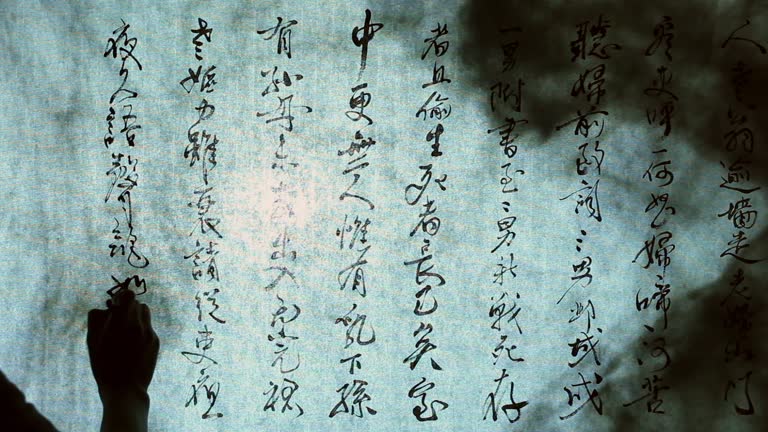 人老翁逾墻走老婦出门
看吏呼一何怒婦啼一何苦
聽婦前致詞三男鄴城戍
一男附書至二男新戰死存
者且偷生死者長已矣室
中更無人惟有乳下孫
有孫母未去出入无完裙
老嫗力雖衰請從吏夜
夜久語聲絕如